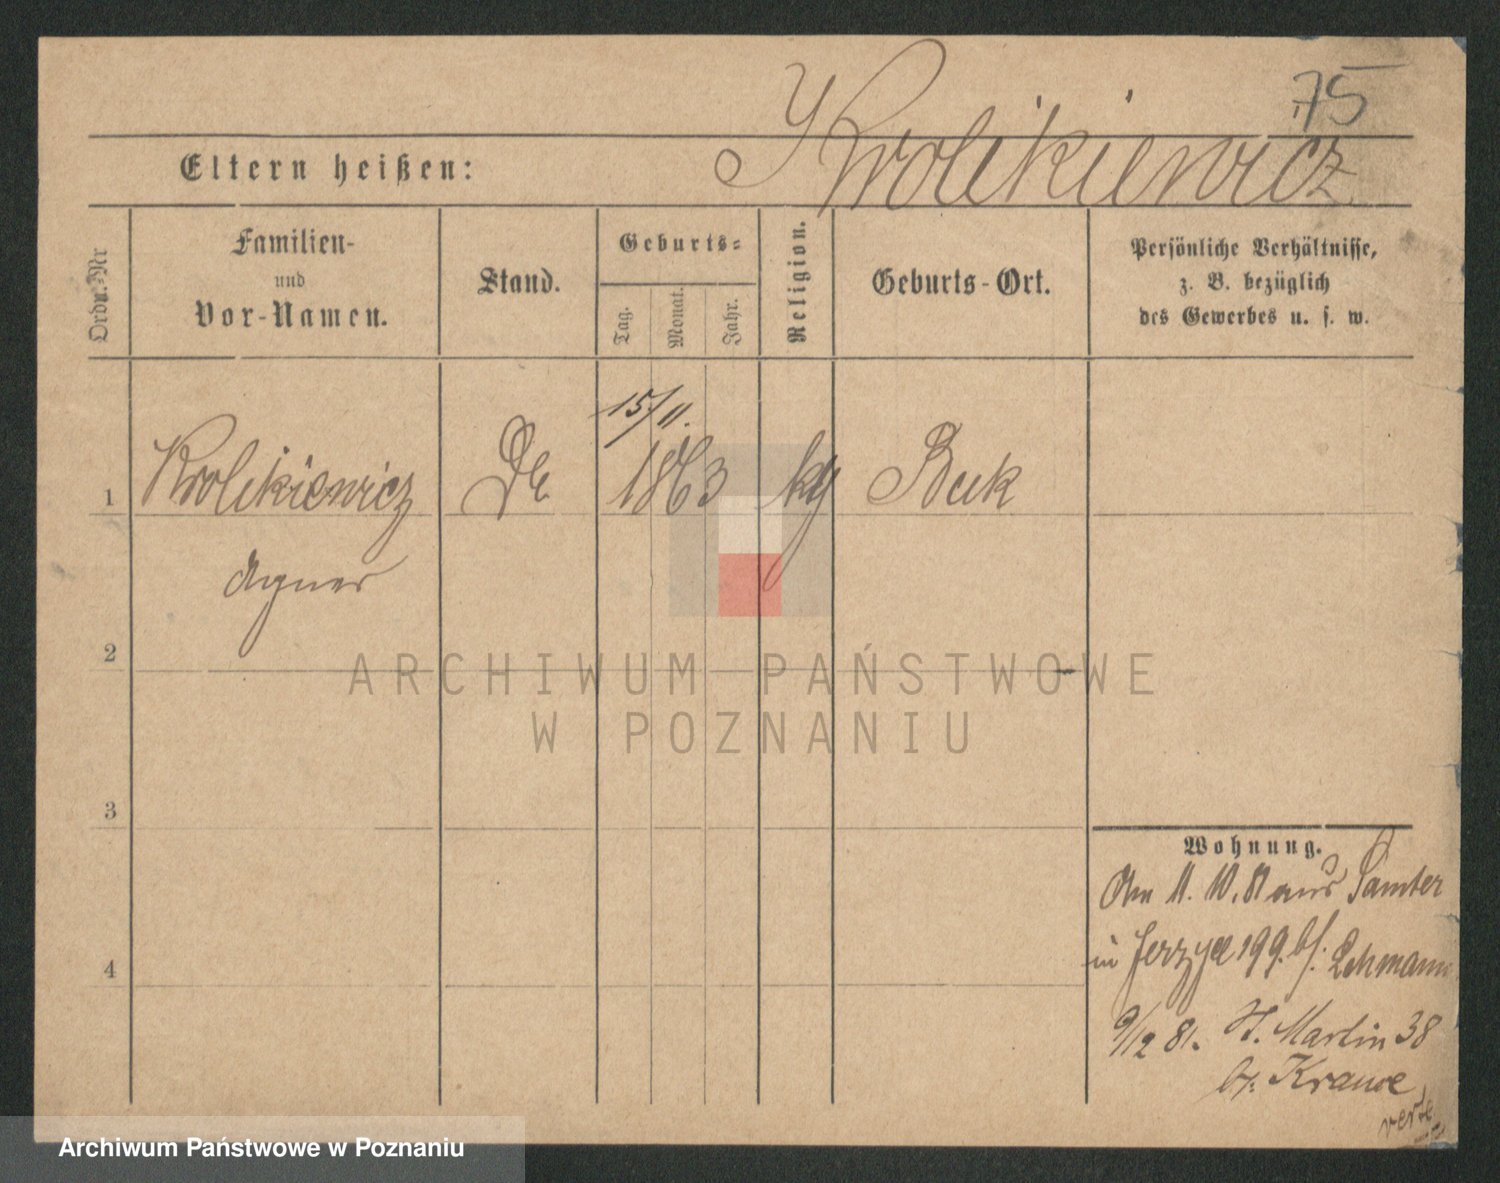 75
Krolikiewicz
Eltern heißen:
Ordn.-Nr
Familien-
und
Vor-Namen.
Stand.
Geburts-
Tag.
Monat.
Jahr.
Religion.
Geburts-Ort.
Persönliche Verhältnisse,
z. B. bezüglich
des Gewerbes u. s. w.
15/11.
1 Krolikiewicz 1863 Buk
Agnes
2
ARCHIWUM PAŃSTWOWE
W POZNANIU
3
Wohnung.
4
Am 11. 10. 81 aus Samter
in Jerzyce 199. bs. Lehmann
9/12 81. St. Martin 38
bs. Krause
verte
Archiwum Państwowe w Poznaniu